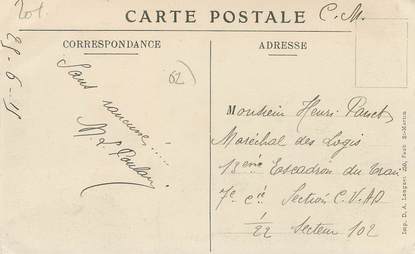 201.
CARTE POSTALE
C. M.
CORRESPONDANCE
ADRESSE
62
Sans rancune.....
M. L. Poulain
Monsieur Henri
Maréchal des Logis
18ème Escadron du Train
7e Cie Section C.V.AD
1/22 Secteur 102
Imp. D. A. Longuet, 250, Faub. St-Martin